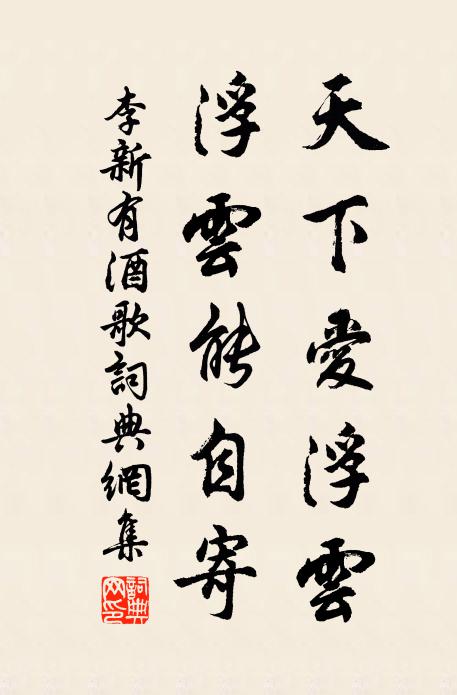 天下愛浮雲
浮雲能自寄
李新有酒歌詞典網集
詞典网印